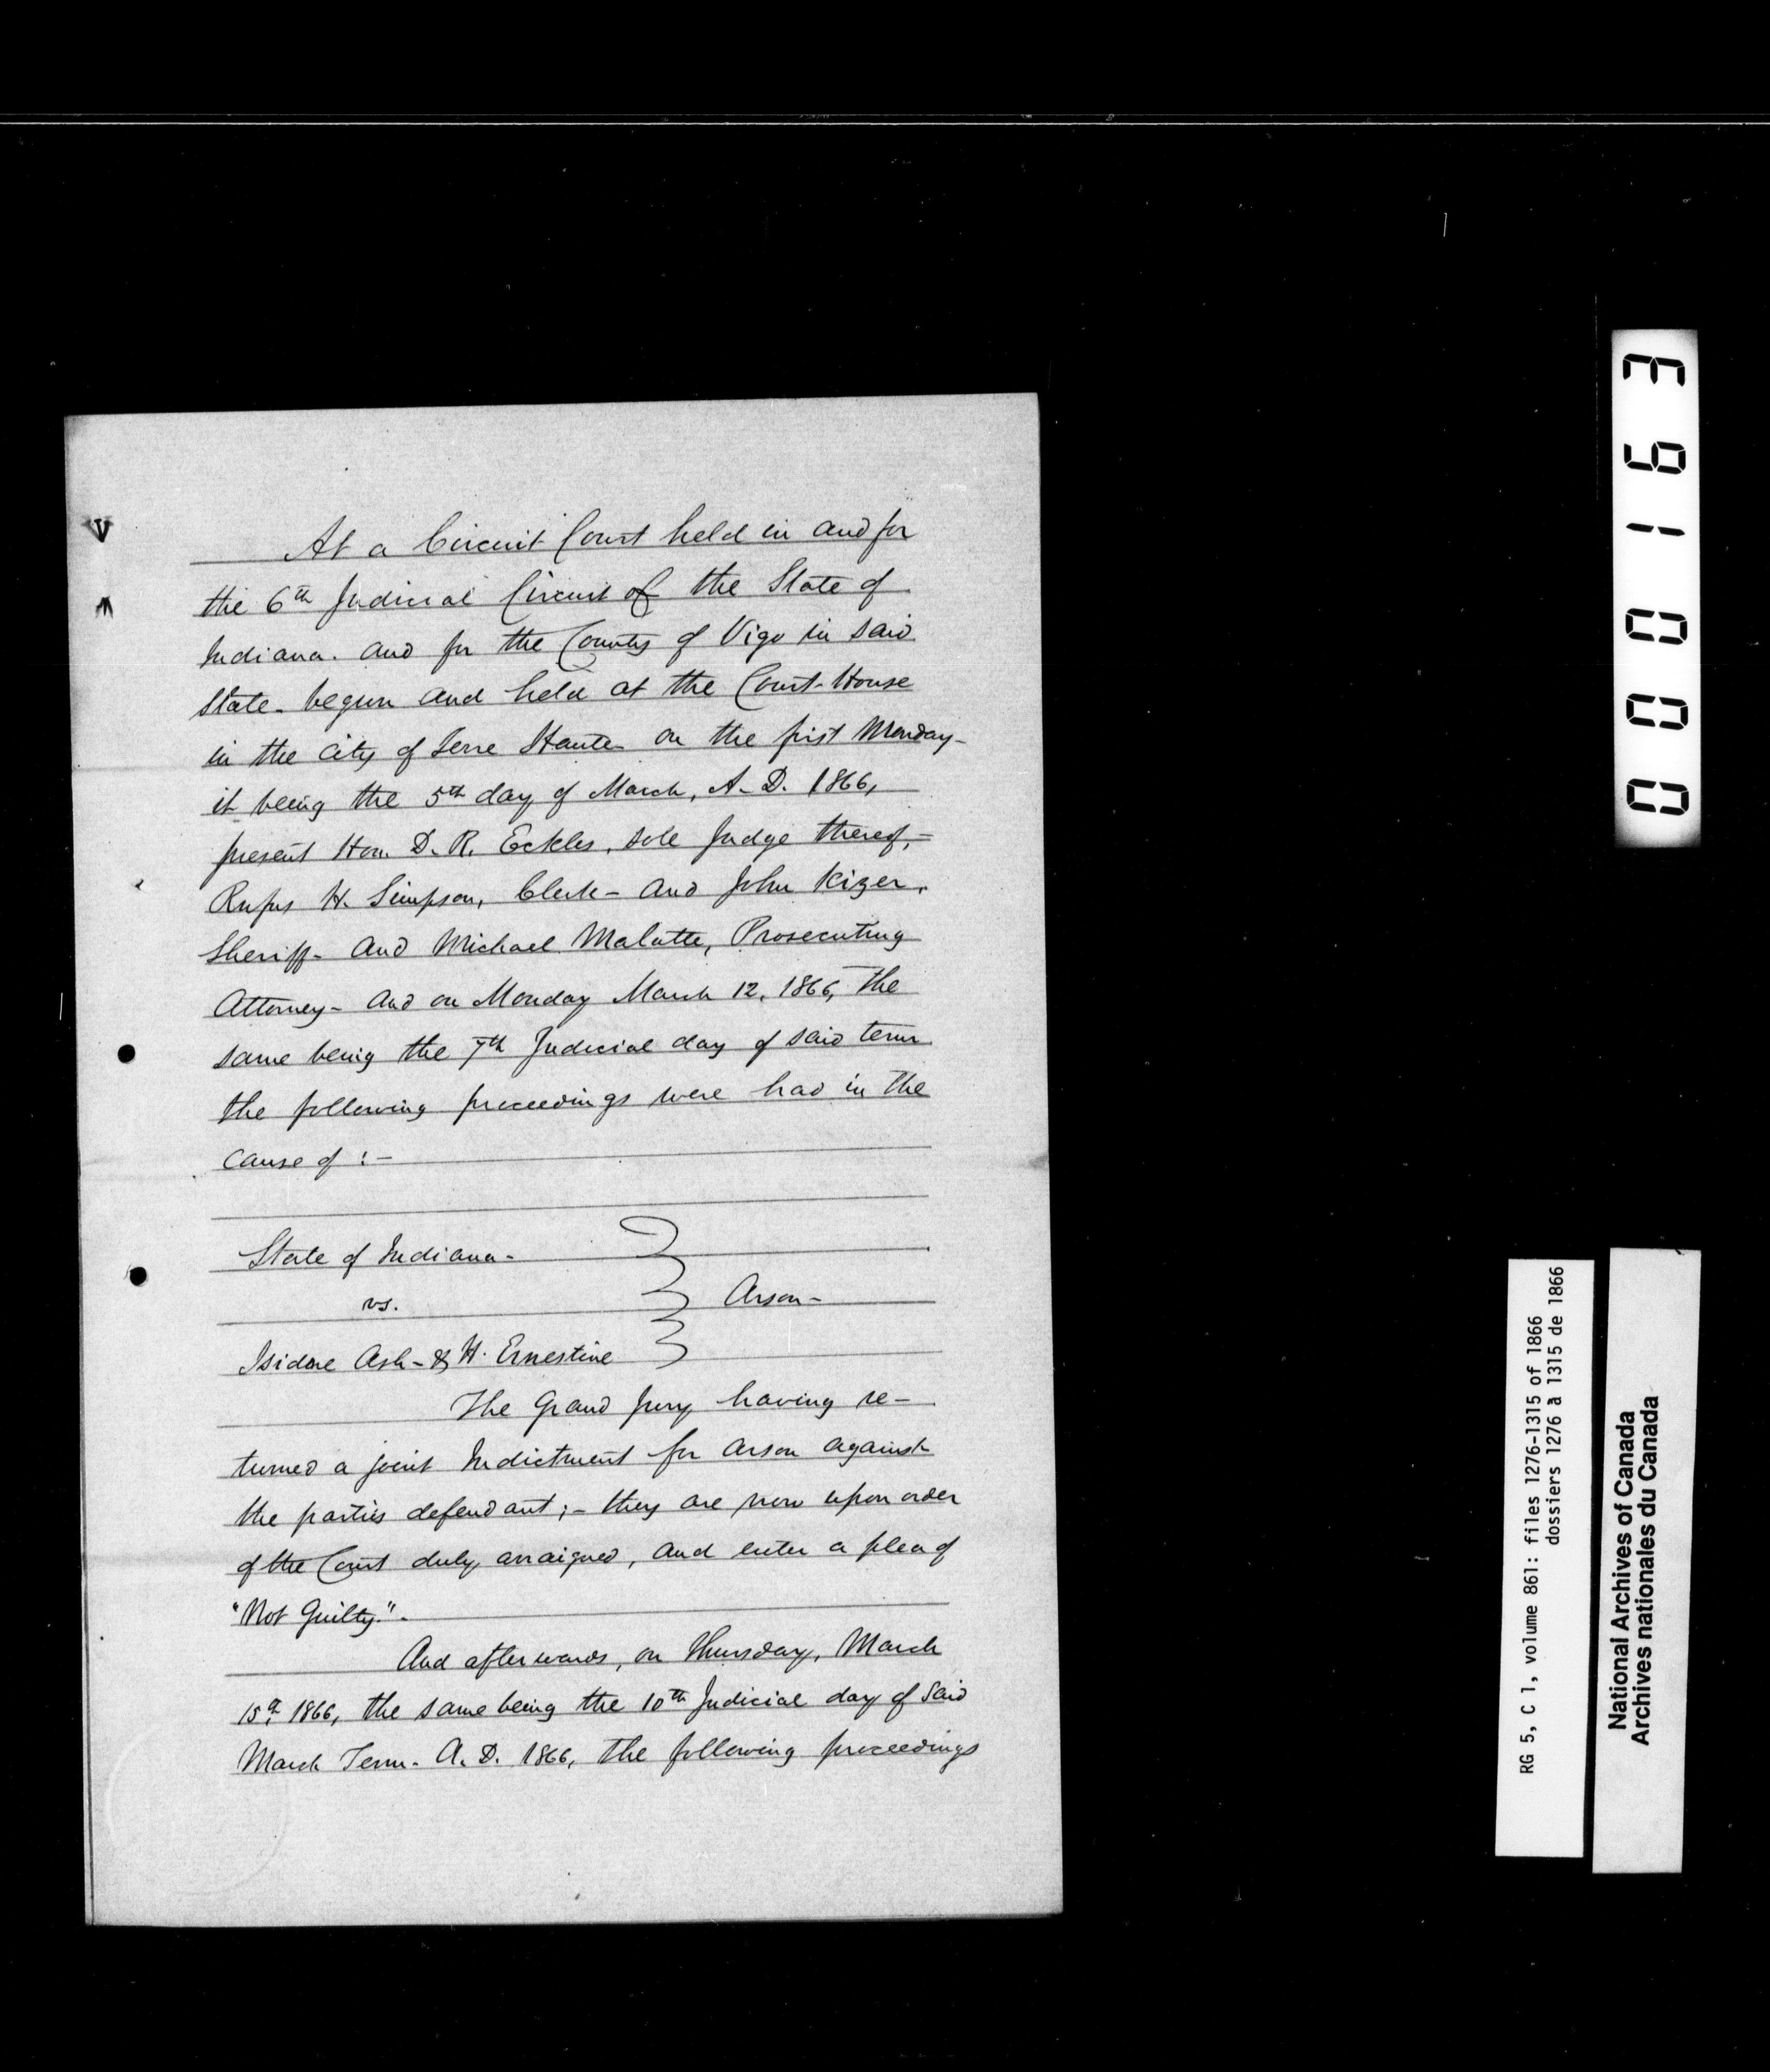 At a Circuit Court held in and for
the 6th Judicial Circuit of the State of
Indiana. and for the County of Vigo in said
State - begun and held at the Court-House
in the City of Terre Haute on the first Monday -
it being the 5th day of March, A. D. 1866,
present Hon. D. R. Eckles, sole Judge thereof, -
Rufus H. Simpson, Clerk - and John Kizer,
Sheriff - and Michael Malotte, Prosecuting
Attorney - and on Monday March 12, 1866, the
same being the 7th Judicial day of said term
the following proceedings were had in the
cause of : -
State of Indiana -
vs.
Arson -
Isidore Ash - & H. Ernestine
The Grand Jury having re-
turned a joint Indictment for Arson against
the parties defendant ; - they are now upon order
of the Court duly arraigned, and enter a plea of
"Not Guilty." -
And afterwards, on Thursday, March
15th, 1866, the same being the 10th Judicial day of said
March Term - A. D. 1866, the following proceedings
000163
RG 5, C 1, volume 861: files 1276-1315 of 1866
dossiers 1276 à 1315 de 1866
National Archives of Canada
Archives nationales du Canada